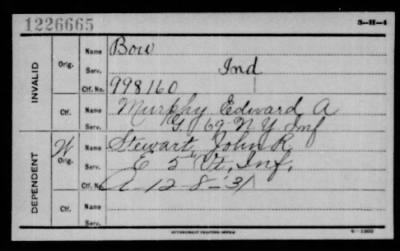 1226665
3-II-4
INVALID
Orig.
Name Bow
Serv. Ind
Ctf. No. 998160
Ctf.
Name Murphy Edward A
Serv. G 69 N Y Inf
DEPENDENT
W
Orig.
Name Stewart, John R,
Serv. E 5 Vt, Inf,
Ctf. No. A-12-8-31
Ctf.
Name
Serv.
GOVERNMENT PRINTING OFFICE